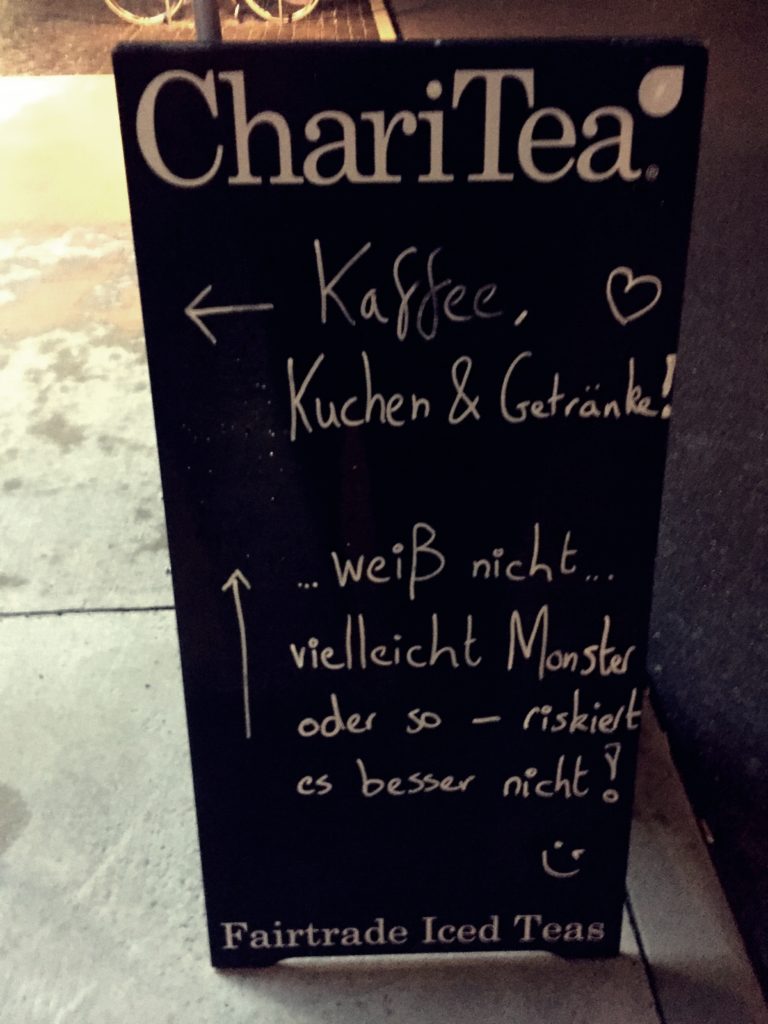 ChariTea®
← Kaffee, ♡
Kuchen & Getränke!
↑ ...weiß nicht...
vielleicht Monster
oder so – riskiert
es besser nicht!
Fairtrade Iced Teas